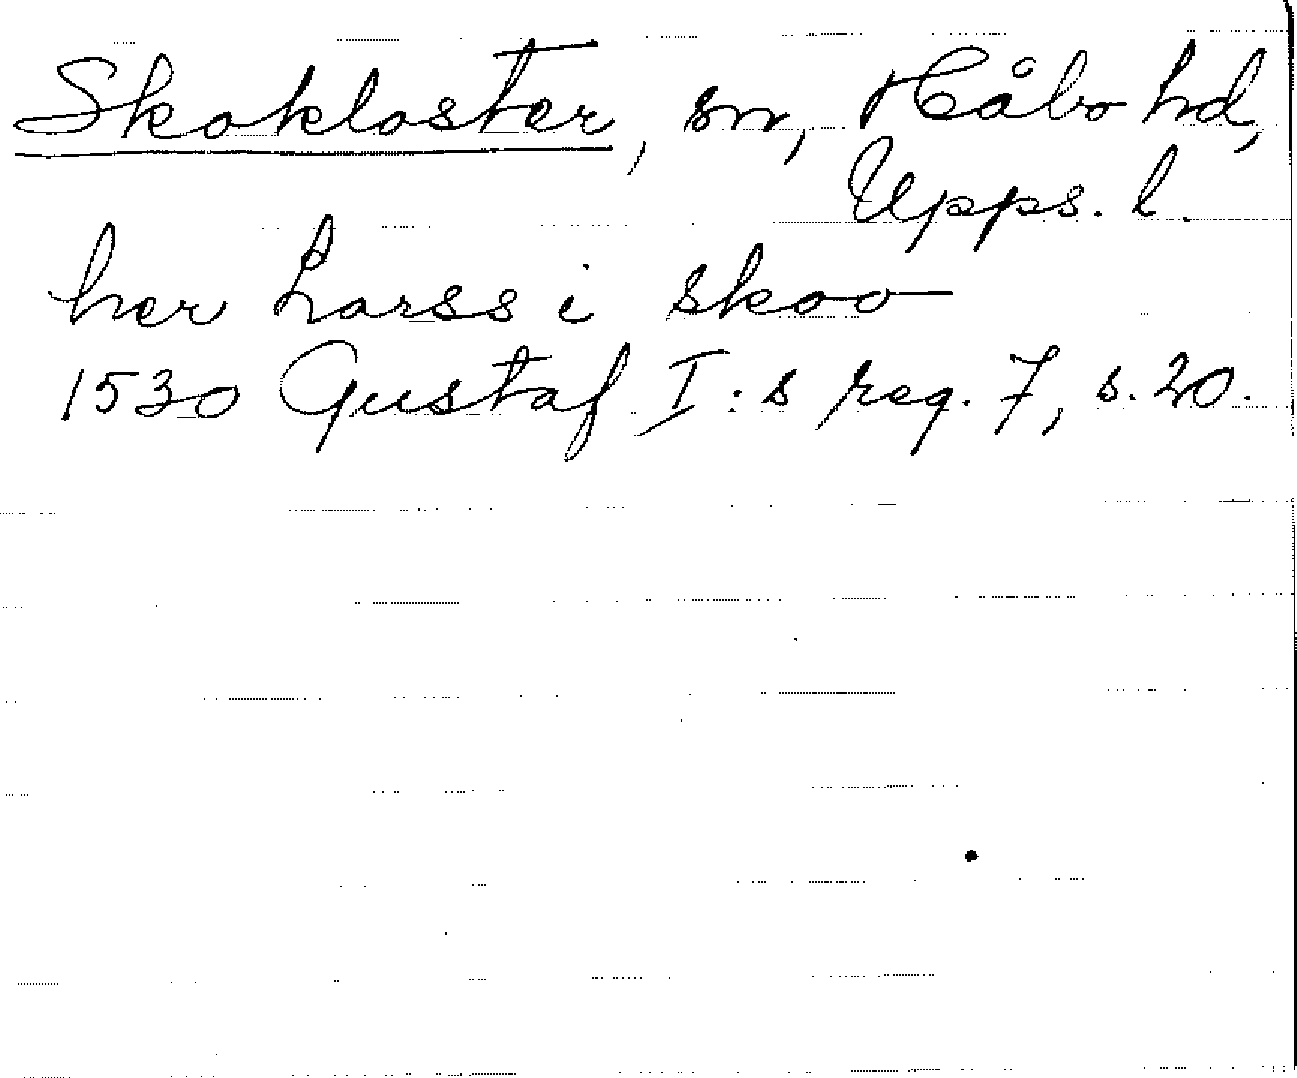 Skokloster, sn, Håbo hd,
Upps. l.
her Larss i skoo
1530 Gustaf I:s reg. 7, s. 20.